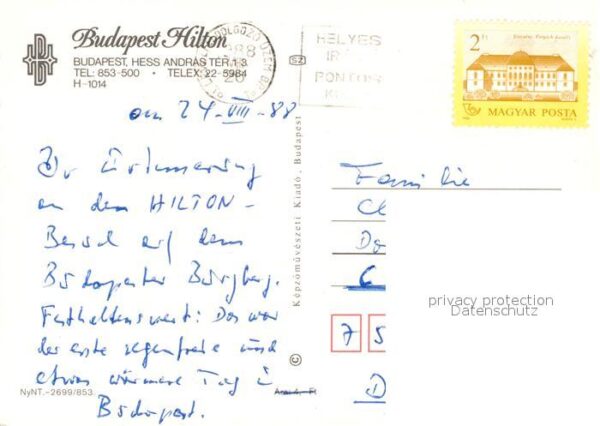 Budapest Hilton
BUDAPEST, HESS ANDRÁS TÉR 1-3.
TEL: 853-500 • TELEX: 22-5984
H-1014
HELYES
PONTOS
SZ
2 Ft
MAGYAR POSTA
am 24-VIII-88
Zur Erinnerung
an den HILTON-
Besuch auf dem
Budapester Burgberg.
Festhaltenswert: Das war
der erste regenfreie und
etwas wärmere Tag in
Budapest.
NyNT.-2699/853.
Képzőművészeti Kiadó, Budapest
©
Familie
C
Do
6
privacy protection
Datenschutz
7 5
D